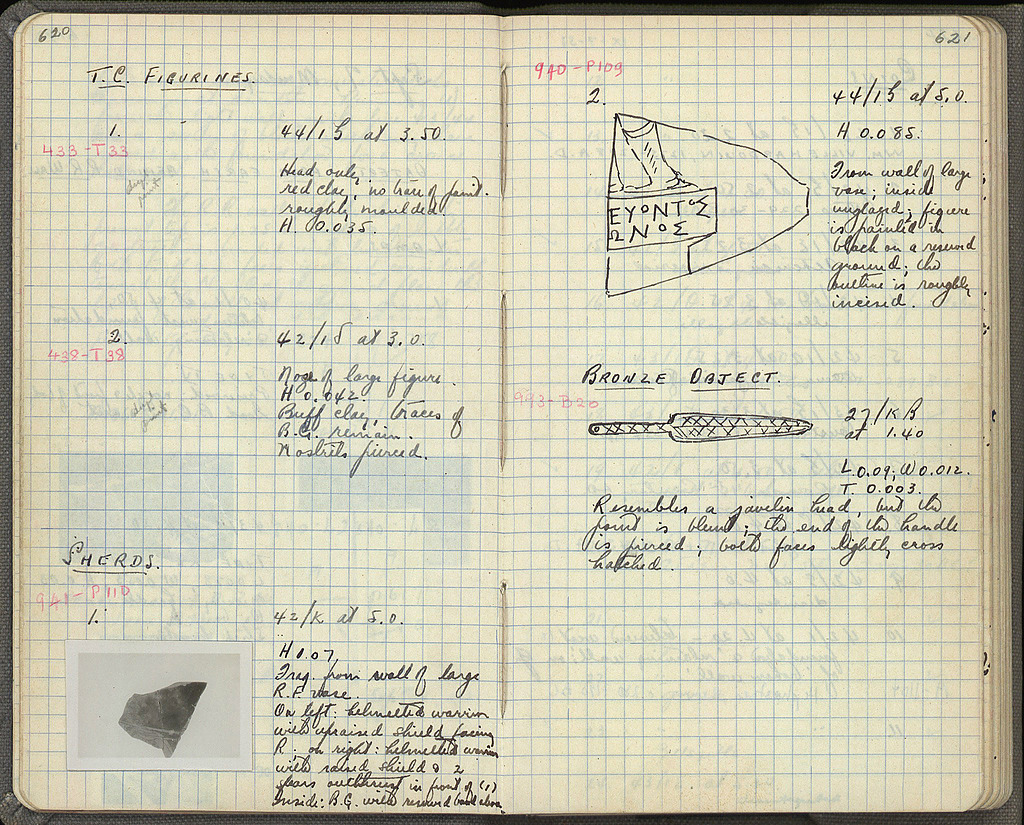 620
T.C. FIGURINES.
1.
433-T33
44/ΙΕ at 3.50.
Head only,
red clay, no trace of paint.
roughly moulded.
H. 0.035.
2.
438-T38
42/ΙΕ at 3.0.
Nose of large figure.
H 0.042.
Buff clay, traces of
B.G. remain.
Nostrils pierced.
SHERDS.
941-P110
1.
42/K at 5.0.
H 0.07
Frag. from wall of large
R.F. vase.
On left: helmetted warrior
with upraised shield facing
R; on right: helmetted warrior
with raised shield & 2
spears outthrust in front of (1)
Inside: B.G. with reserved band above
621
940-P109
2.
44/ΙΕ at 5.0.
H 0.085.
From wall of large
vase; inside
unglazed; figure
is painted in
black on a reserved
ground; the
outline is roughly
incised.
ΕΥΟΝΤΟΣ
ΩΝΟΣ
BRONZE OBJECT.
993-B20
27/ΚΒ
at 1.40
L 0.09; W 0.012.
T. 0.003.
Resembles a javelin head, but the
point is blunt; the end of the handle
is pierced; both faces lightly cross
hatched.